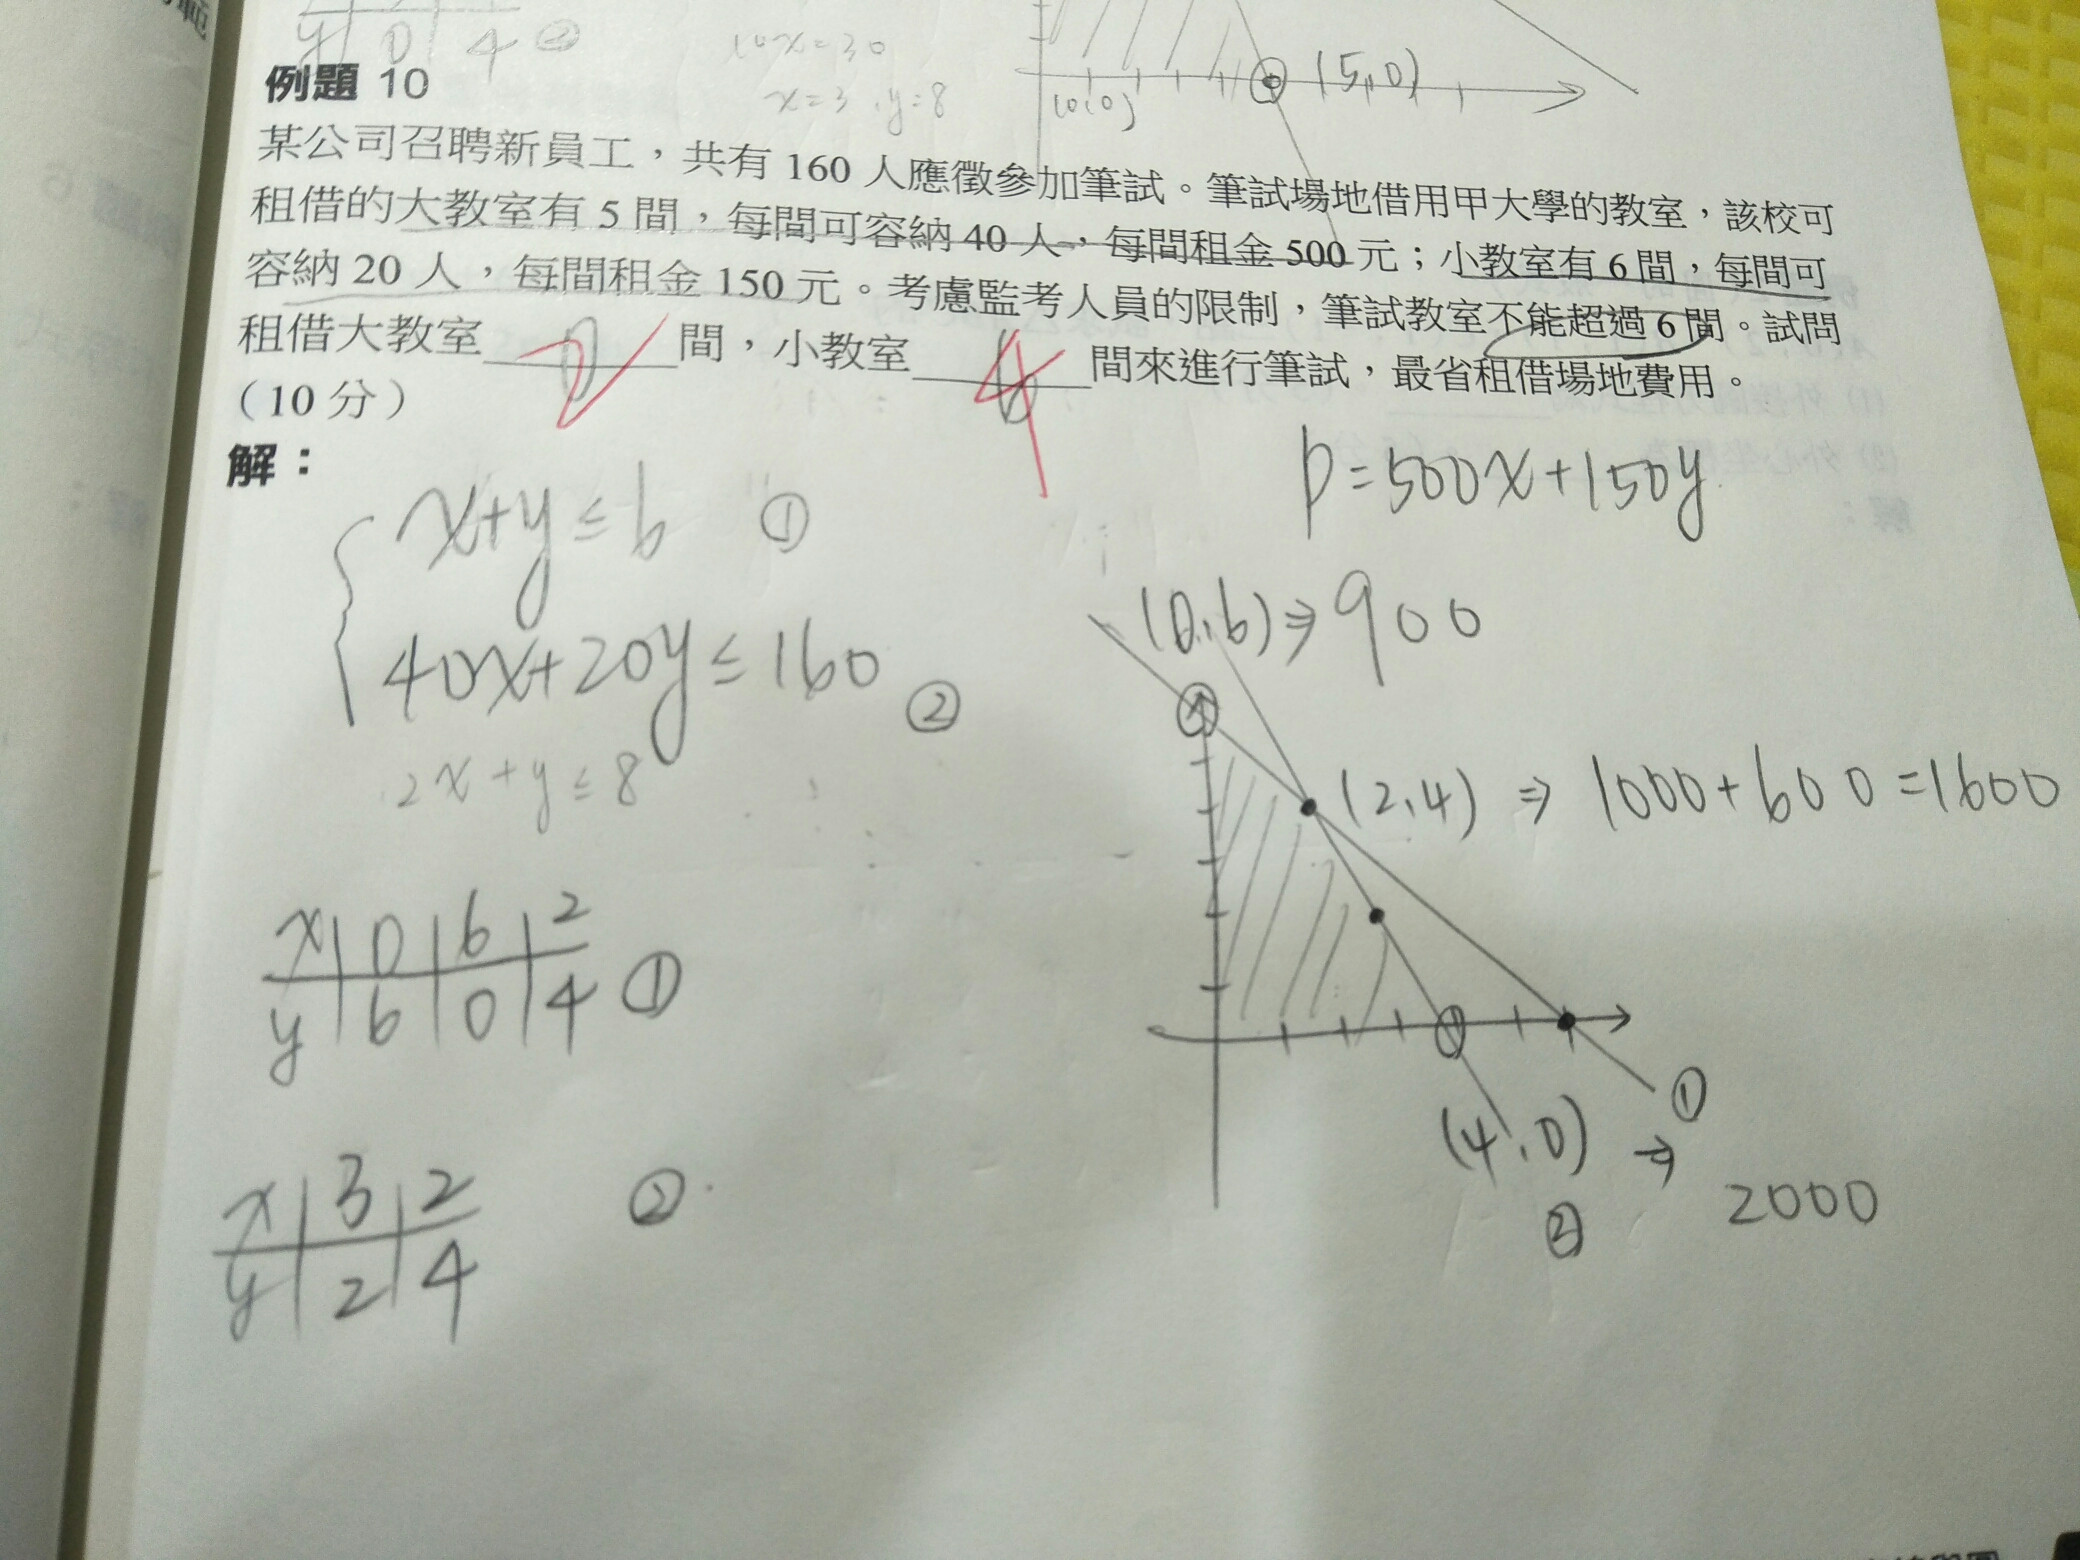 y 0 4 ②
10x=30
x=3, y=8
(0,0)
(5,0)
例題 10
某公司召聘新員工，共有 160 人應徵參加筆試。筆試場地借用甲大學的教室，該校可
租借的大教室有 5 間，每間可容納 40 人，每間租金 500 元；小教室有 6 間，每間可
容納 20 人，每間租金 150 元。考慮監考人員的限制，筆試教室不能超過 6 間。試問
租借大教室 0 2 間，小教室 6 4 間來進行筆試，最省租借場地費用。
（10 分）
解：
P=500x+150y
x+y≤6 ①
40x+20y≤160 ②
2x+y≤8
(0,6)⇒900
(2,4)⇒1000+600=1600
x 0 6 2
y 6 0 4 ①
①
(4,0)⇒2000
②
x 3 2 ②
y 2 4